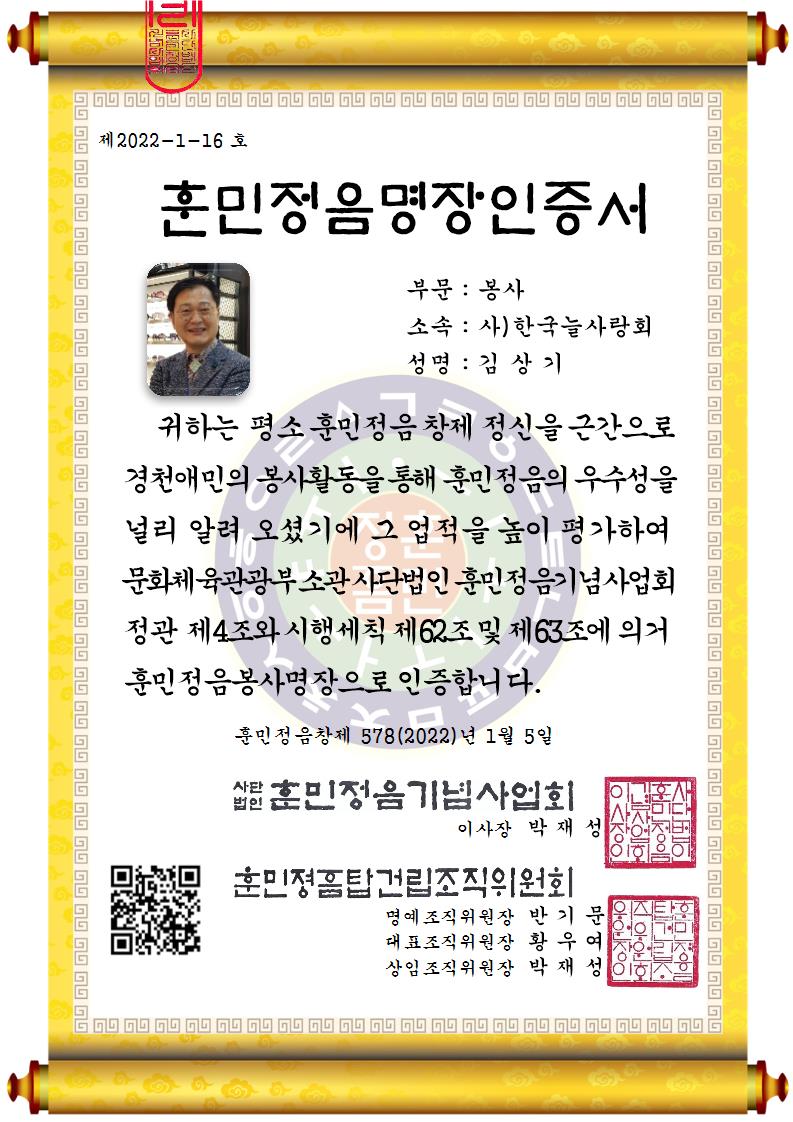 제2022-1-16 호
훈민정음명장인증서
부문 : 봉사
소속 : 사)한국늘사랑회
성명 : 김 상 기
귀하는 평소 훈민정음 창제 정신을 근간으로
경천애민의 봉사활동을 통해 훈민정음의 우수성을
널리 알려 오셨기에 그 업적을 높이 평가하여
문화체육관광부 소관 사단법인 훈민정음기념사업회
정관 제4조와 시행세칙 제62조 및 제63조에 의거
훈민정음봉사명장으로 인증합니다.
훈민정음창제 578(2022)년 1월 5일
사단법인 훈민정음기념사업회
이사장 박 재 성
훈민정음탑건립조직위원회
명예조직위원장 반 기 문
대표조직위원장 황 우 여
상임조직위원장 박 재 성